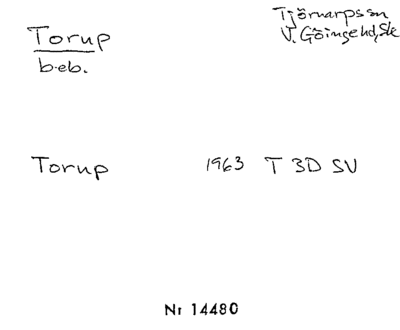 Torup
Tjörnarps sn
b.eb.
V. Göinge hd, Sk
Torup 1963 T 3D SV
Nr 14480